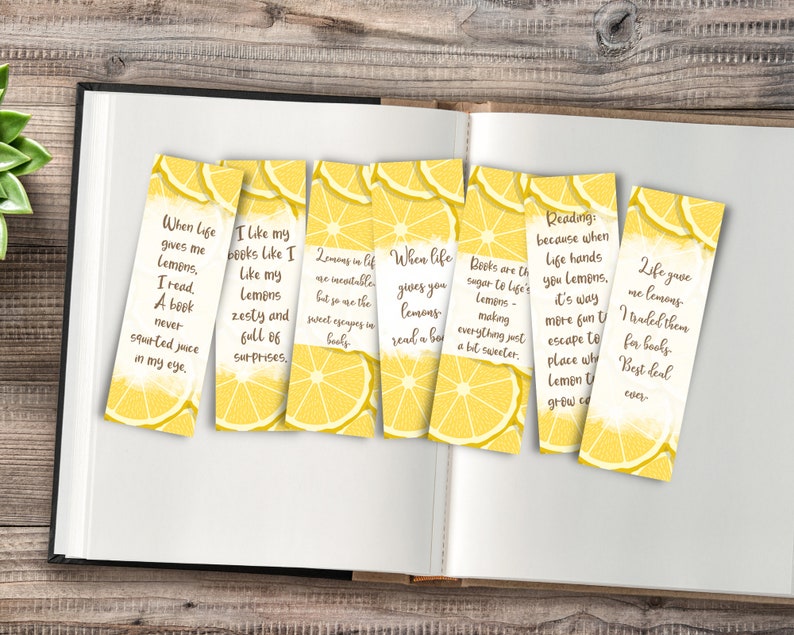 When life
gives me
lemons,
I read.
A book
never
squirted juice
in my eye.
I like my
books like I
like my
lemons
zesty and
full of
surprises.
Lemons in life
are inevitable-
but so are the
sweet escapes in
books.
When life
gives you
lemons-
read a
Books are the
sugar to life's
lemons -
making
everything just
a bit sweeter.
Reading:
because when
life hands
you lemons,
it's way
more fun to
escape to
place
lemon
grow
Life gave
me lemons.
I traded them
for books.
Best deal
ever.